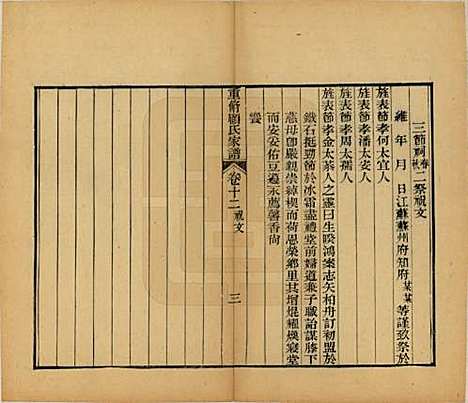 三節祠春秋二祭祝文
維 年 月 日江蘇蘇州府知府某某等謹致祭於
旌表節孝何太宜人
旌表節孝潘太安人
旌表節孝周太恭人
旌表節孝金太恭人之靈曰生睽鴻案志矢柏舟訂初盟於
鐵石挺勁節於冰霜盡禮堂前婦道兼子職詒謀膝下
慈母卽嚴親崇綽楔而荷恩榮鄉里其增焜耀煥寢堂
而安妥佑豆籩永薦馨香尚
饗
重修顧氏家譜 卷十二 祝文 三